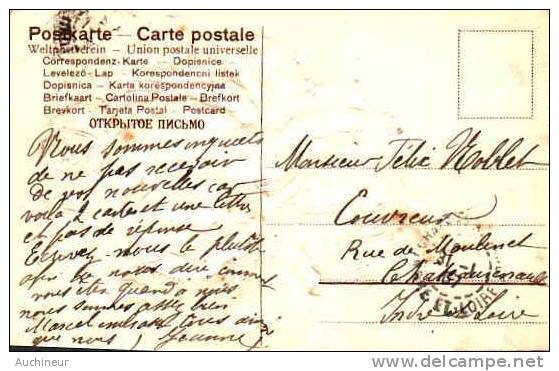 Postkarte – Carte postale
Weltpostverein – Union postale universelle
Correspondenz-Karte – Dopisnice
Levelező-Lap – Korespondencni listek
Dopisnica – Karta korespondencyjna
Briefkaart – Cartolina Postale – Brefkort
Brevkort – Tarjeta Postal – Postcard
ОТКРЫТОЕ ПИСЬМО
Vous sommes inquiets
de ne pas recevoir
de vos nouvelles car
voilà 2 cartes et une lettre
et pas de réponse
Ecrivez-nous le plutôt
afin de nous dire comme
vous êtes quand à nous
nous sommes assez bien
Marcel embrasse
que nous Jeanne
Monsieur Félix Noblet
Couvreur
Rue de Moulinet
Chateaurenault
Indre et Loire
ET LOIRE
Auchineur
delcampe.net